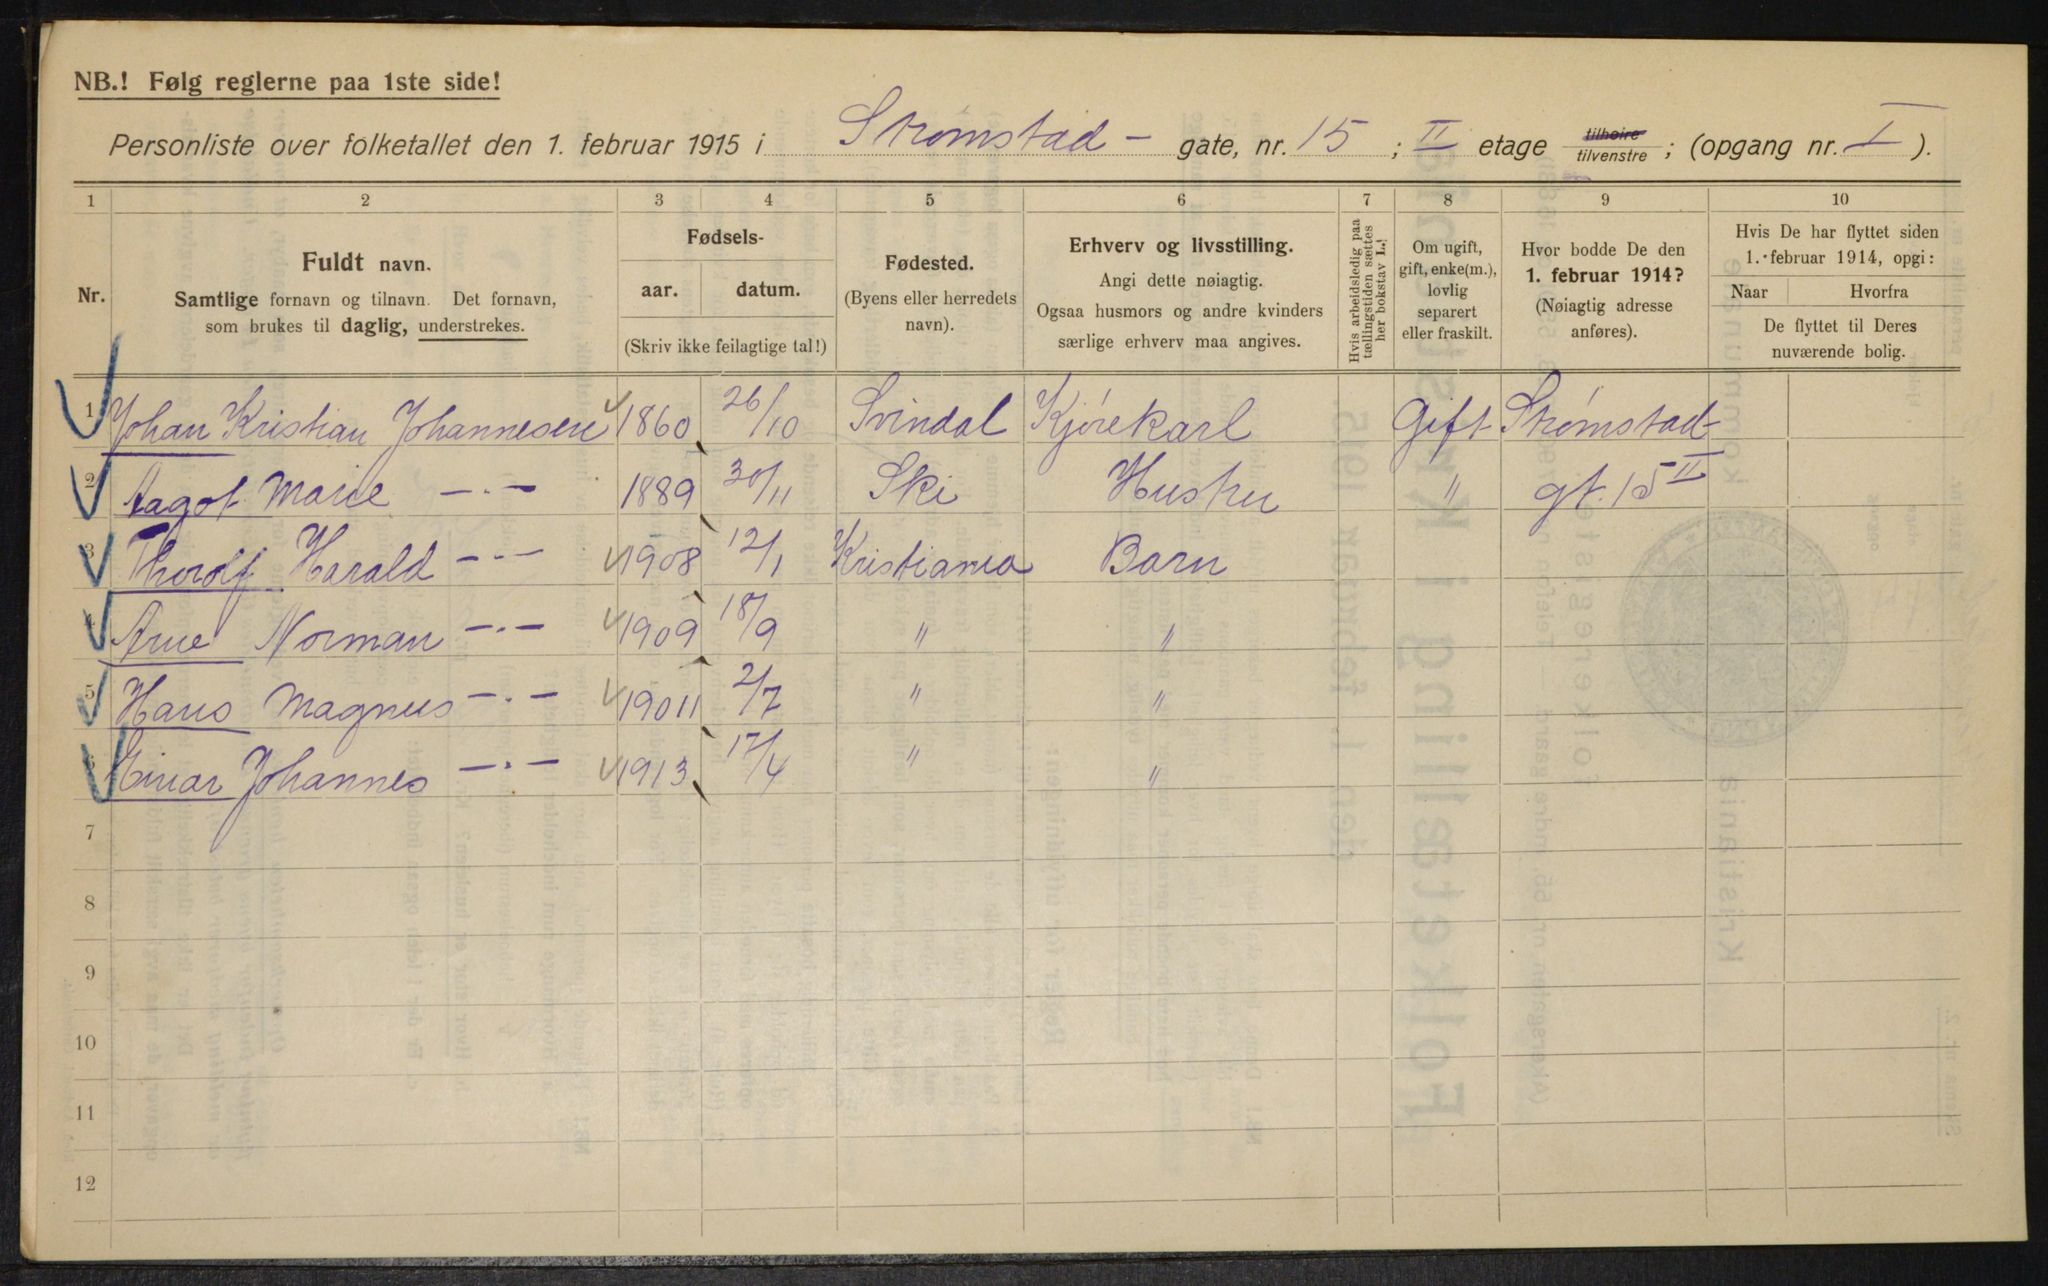 NB.! Følg reglerne paa 1ste side!
Personliste over folketallet den 1. februar 1915 i Strømstad - gate, nr. 15 ; II etage tilhøire tilvenstre ; (opgang nr. I ).
1 2 3 4 5 6 7 8 9 10
Nr.
Fuldt navn.
Samtlige fornavn og tilnavn. Det fornavn,
som brukes til daglig, understrekes.
Fødsels-
aar. datum.
(Skriv ikke feilagtige tal!)
Fødested.
(Byens eller herredets
navn).
Erhverv og livsstilling.
Angi dette nøiagtig.
Ogsaa husmors og andre kvinders
særlige erhverv maa angives.
Hvis arbeidsledig paa
tællingstiden sættes
her bokstav L.!
Om ugift,
gift, enke(m.),
lovlig
separert
eller fraskilt.
Hvor bodde De den
1. februar 1914?
(Nøiagtig adresse
anføres).
Hvis De har flyttet siden
1. februar 1914, opgi:
Naar Hvorfra
De flyttet til Deres
nuværende bolig.
1 Johan Kristian Johannesen 1860 26/10 Svindal Kjørekarl Gift Strømstad-
2 Aagot Marie -"- 1889 30/11 Ski Hustru " gt. 15 II
3 Thorolf Harald -"- 1908 12/1 Kristiania Barn
4 Arne Norman -"- 1909 18/9 " "
5 Hans Magnus -"- 19011 2/7 " "
6 Einar Johannes -"- 1913 17/4 " "
7
8
9
10
11
12